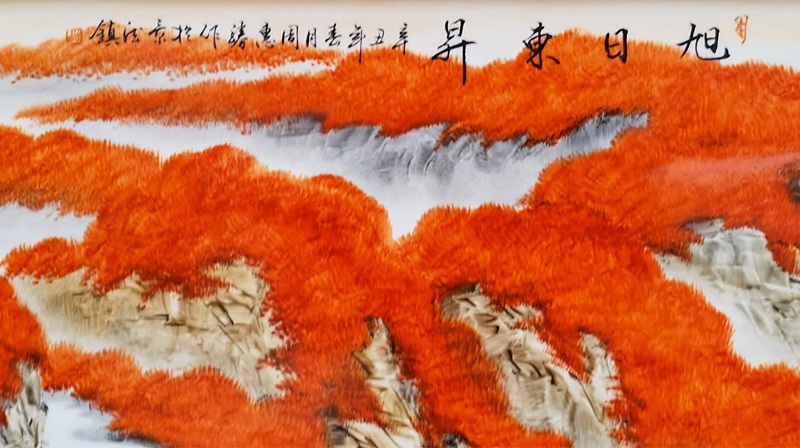 旭日東昇
辛丑年春月周惠勝作於景德鎮